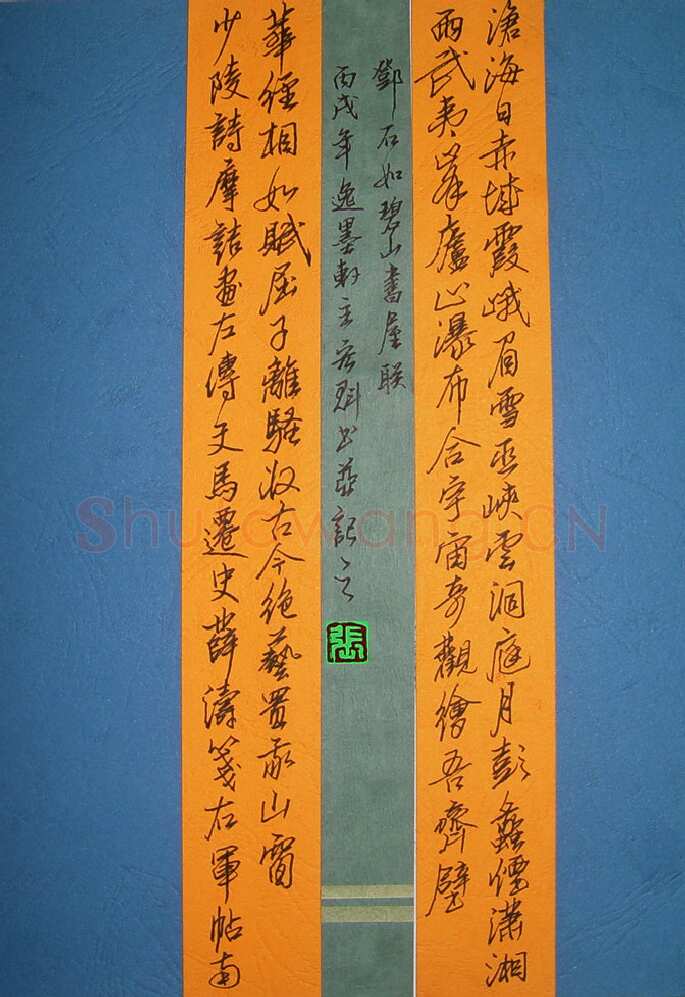 滄海日赤城霞峨眉雪巫峽雲洞庭月彭蠡煙瀟湘
雨武夷峯廬山瀑布合宇宙奇觀繪吾齋壁
少陵詩摩詰畫左傳文馬遷史薛濤箋右軍帖南
華經相如賦屈子離騷收古今絕藝置我山窗
鄧石如碧山書屋联
丙戌年逸墨軒主书並記之
張
Shufawang.CN